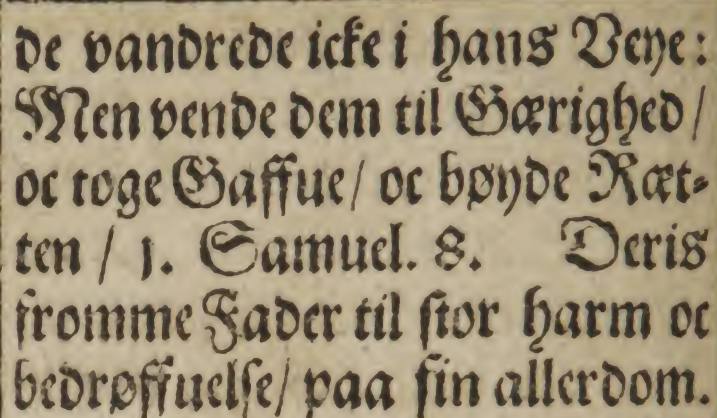 de vandrede icke i hans Veye:
Men vende dem til Gærighed/
oc toge Gaffue/ oc bøyde Ræt-
ten / 1. Samuel. 8. Deris
fromme Fader til stor harm oc
bedrøffuelse/ paa sin allerdom.